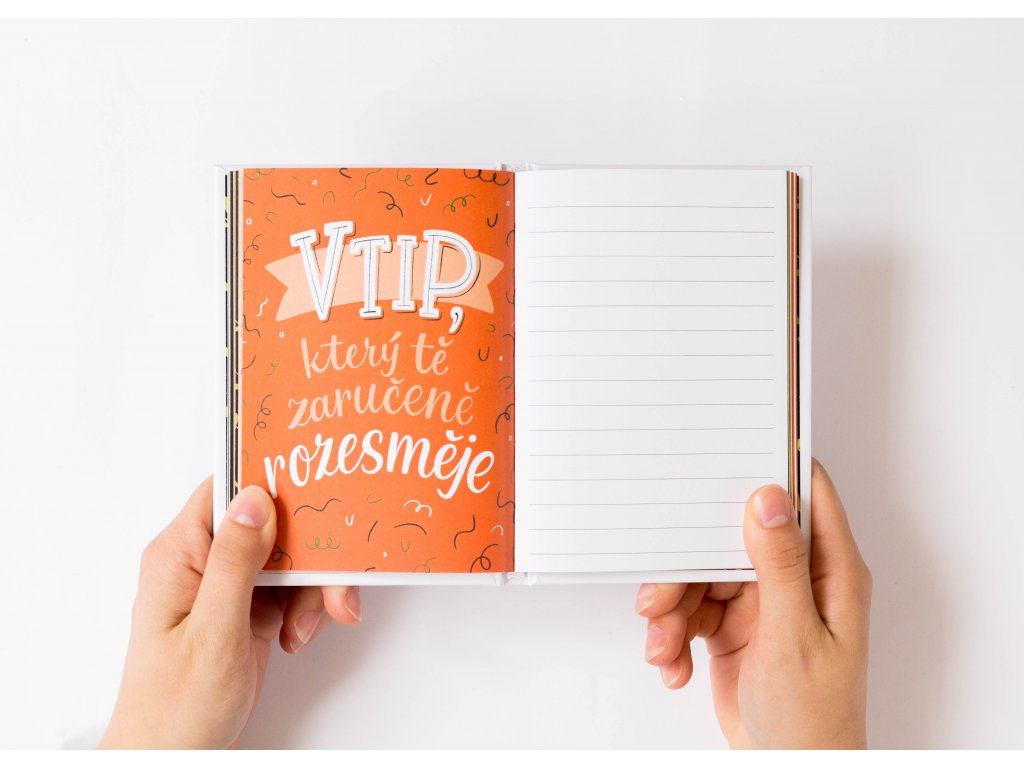 VTIP,
který tě
zaručeně
rozesměje